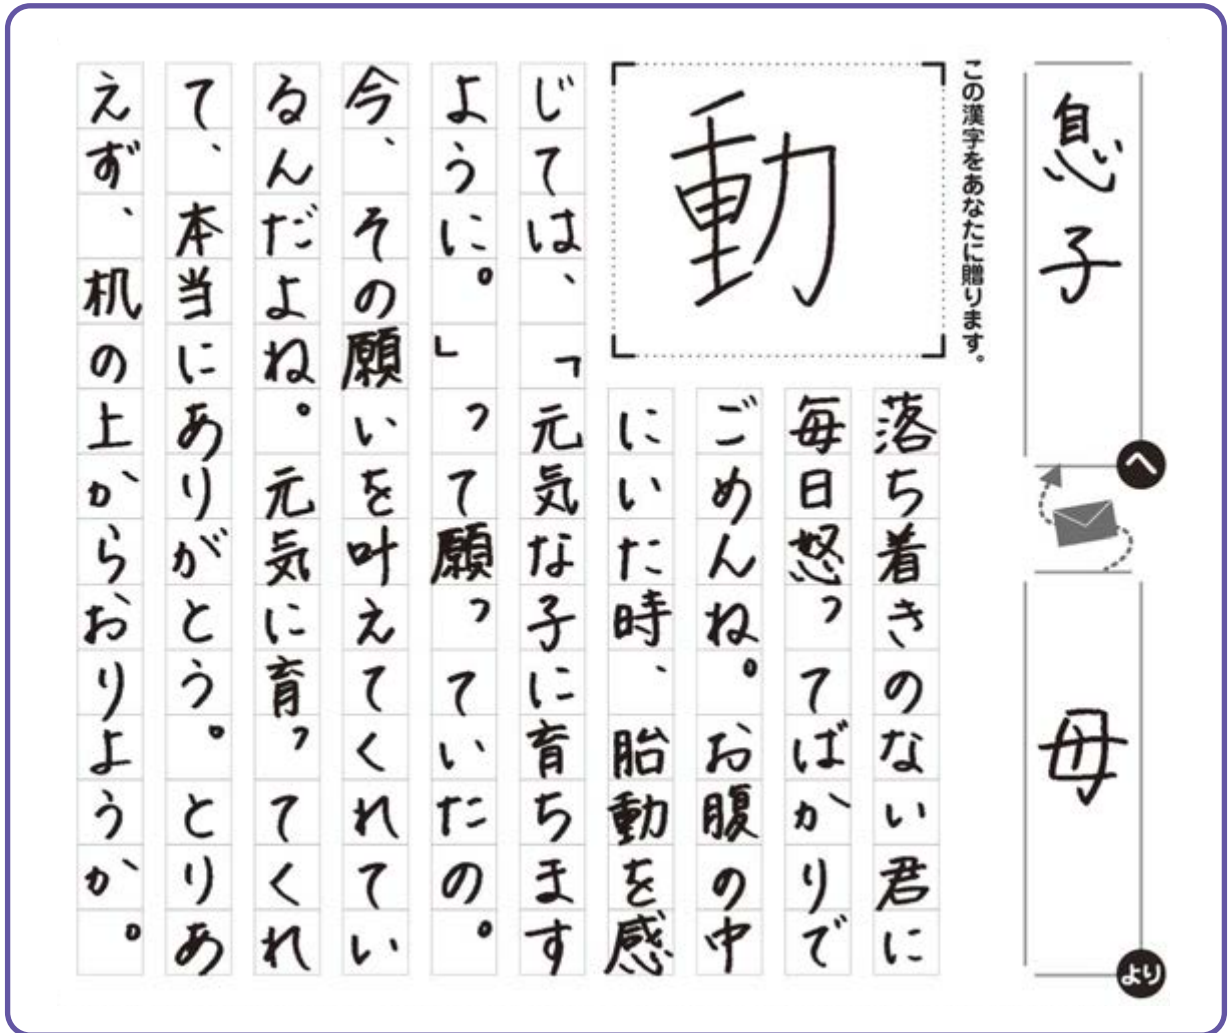 息子
へ
母
より
この漢字をあなたに贈ります。
動
落ち着きのない君に
毎日怒ってばかりで
ごめんね。お腹の中
にいた時、胎動を感
じては、「元気な子に育ちます
ように。」って願っていたの。
今、その願いを叶えてくれてい
るんだよね。元気に育ってくれ
て、本当にありがとう。とりあ
えず、机の上からおりようか。